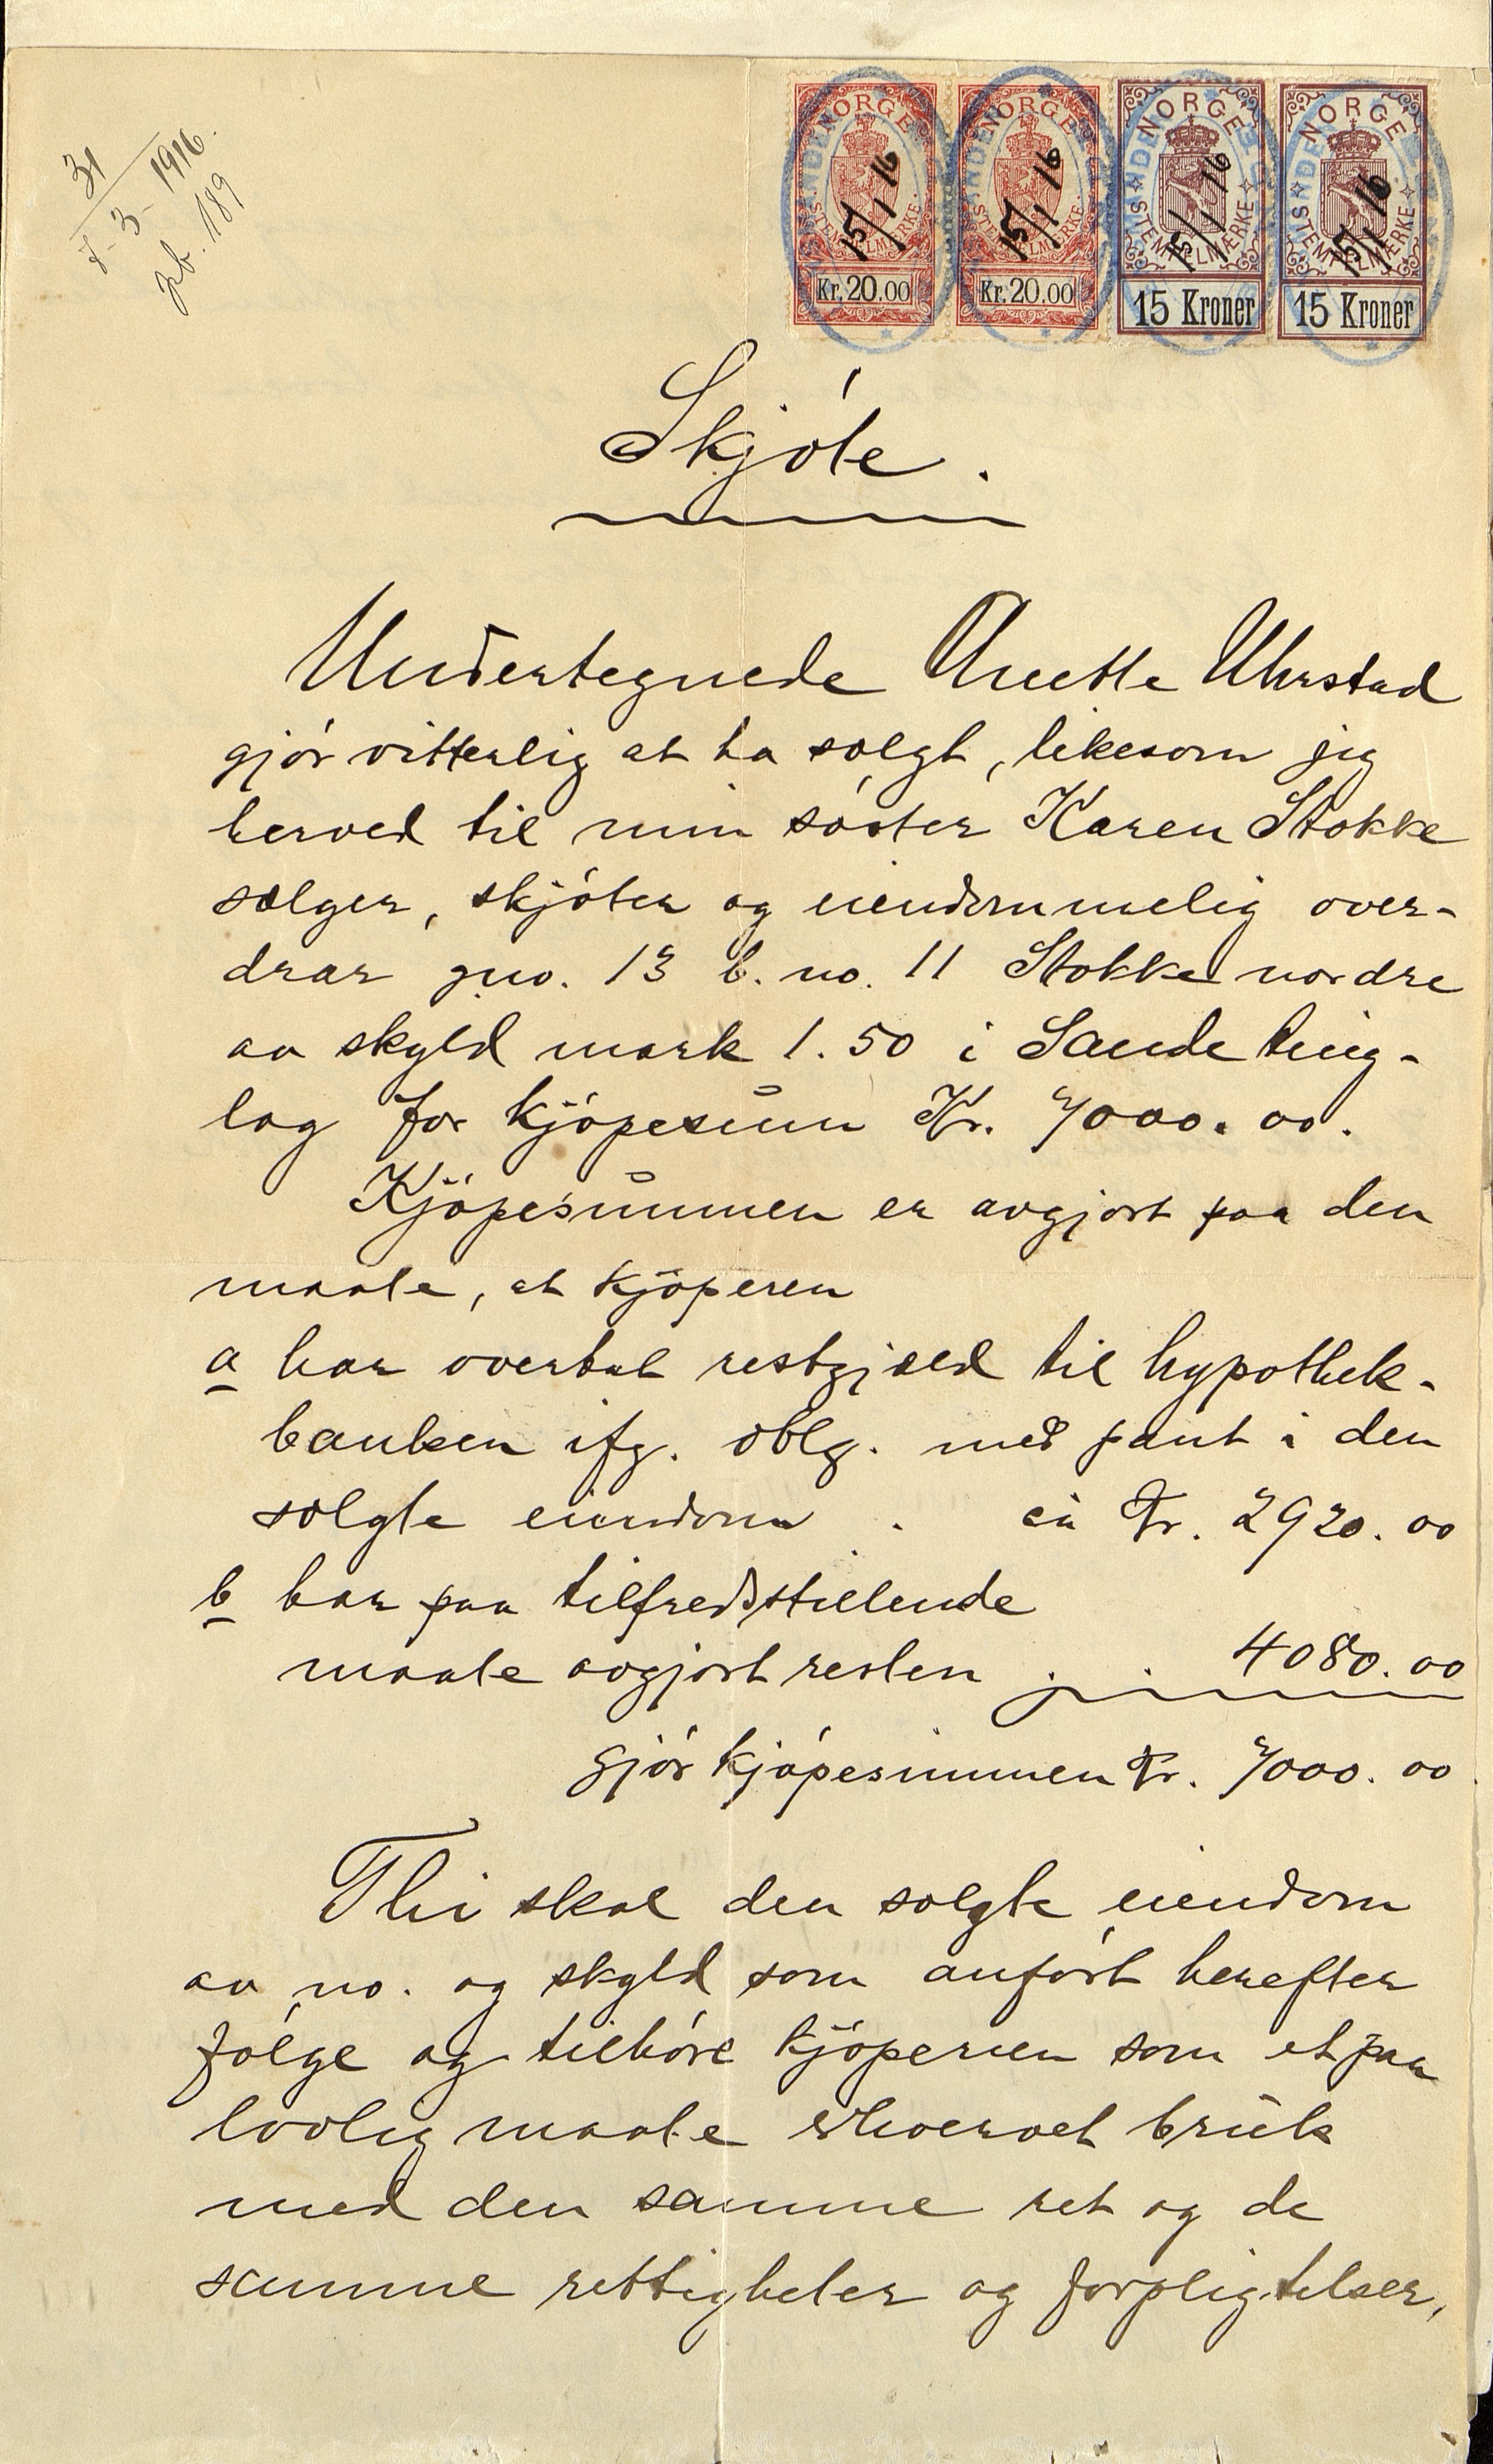 31
7-3-1916.
pb. 189
NORGE NORGE NORGE NORGE
15/1 16 15/1 16 15/1 16 15/1 16
STEMPELMÆRKE. STEMPELMÆRKE. STEMPELMÆRKE STEMPELMÆRKE
Kr. 20.00 Kr. 20.00 15 Kroner 15 Kroner
Skjóte.
Undertegnede Anette Uhrstad
gjór vitterlig at ha solgt, likesom jig
herved til min sóster Karen Stokke
sælger, skjóter og eiendommelig over-
drar gno. 13 b. no. 11 Stokke nordre
av skyld mark 1.50 i Sande ting-
lag for kjópesum Kr. 7000.00.
Kjópesummen er avgjort paa den
maate, at kjóperen
a har overtat restgjæld til hypothek-
banken ifg. oblg. med pant i den
solgte eiendom . ca Kr. 2920.00
b har paa tilfredsstillende
maate avgjort resten . . 4080.00
gjór kjópesummen Kr. 7000.00
Thi skal den solgte eiendom
av no. og skyld som anfórt herefter
fólge og tilhóre kjóperen som et paa
lovlig maate erhvervet bruk
med den samme ret og de
samme rettigheter og forpligtelser,